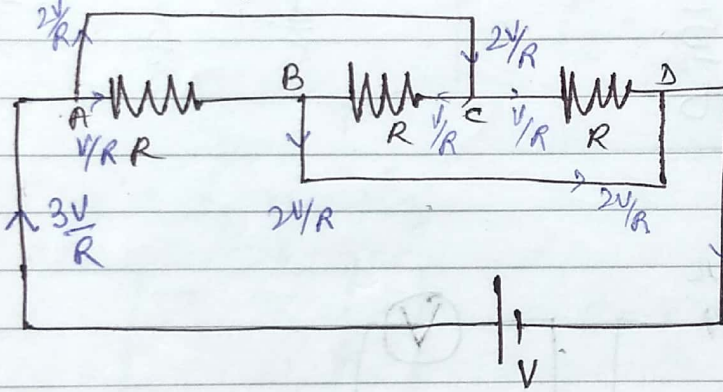 2V/R
2V/R
B
D
A
C
V/R
R
R
V/R
V/R
R
3V/R
2V/R
2V/R
V
V